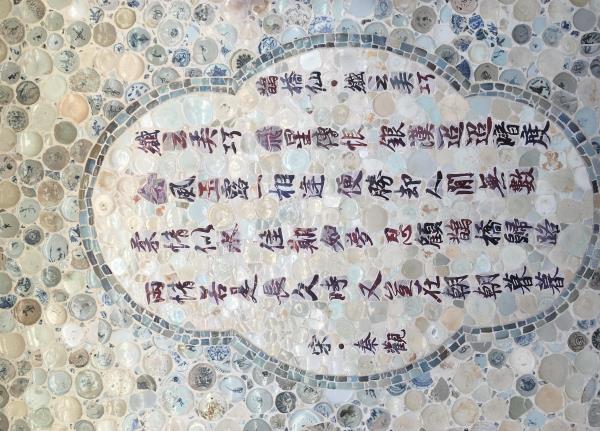 鵲橋仙·纖云弄巧
纖云弄巧 飛星傳恨 銀漢迢迢暗度
金風玉露一相逢 便勝却人間無數
柔情似水 佳期如夢 忍顧鵲橋歸路
兩情若是長久時 又豈在朝朝暮暮
宋·秦觀